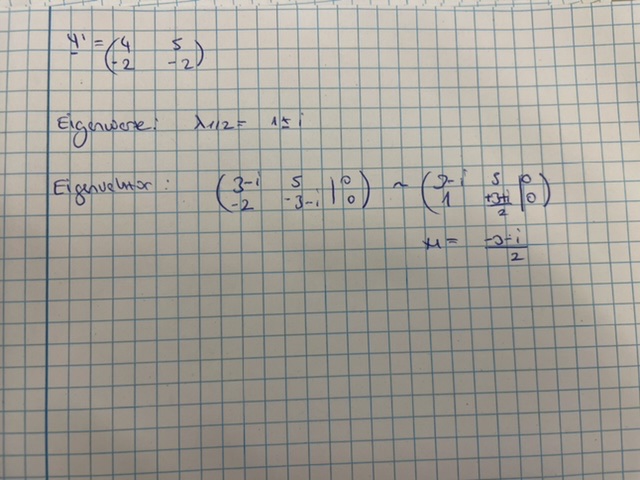 y' = ( 4 5
-2 -2 )
Eigenwerte: λ1/2 = 1 ± i
Eigenvektor: ( 3-i 5 | 0
-2 -3-i | 0 ) ~ ( 3-i 5 | 0
1 +3+i/2 | 0 )
x1 = -3-i/2